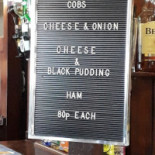 COBS
CHEESE & ONION
CHEESE
&
BLACK PUDDING
HAM
80p EACH